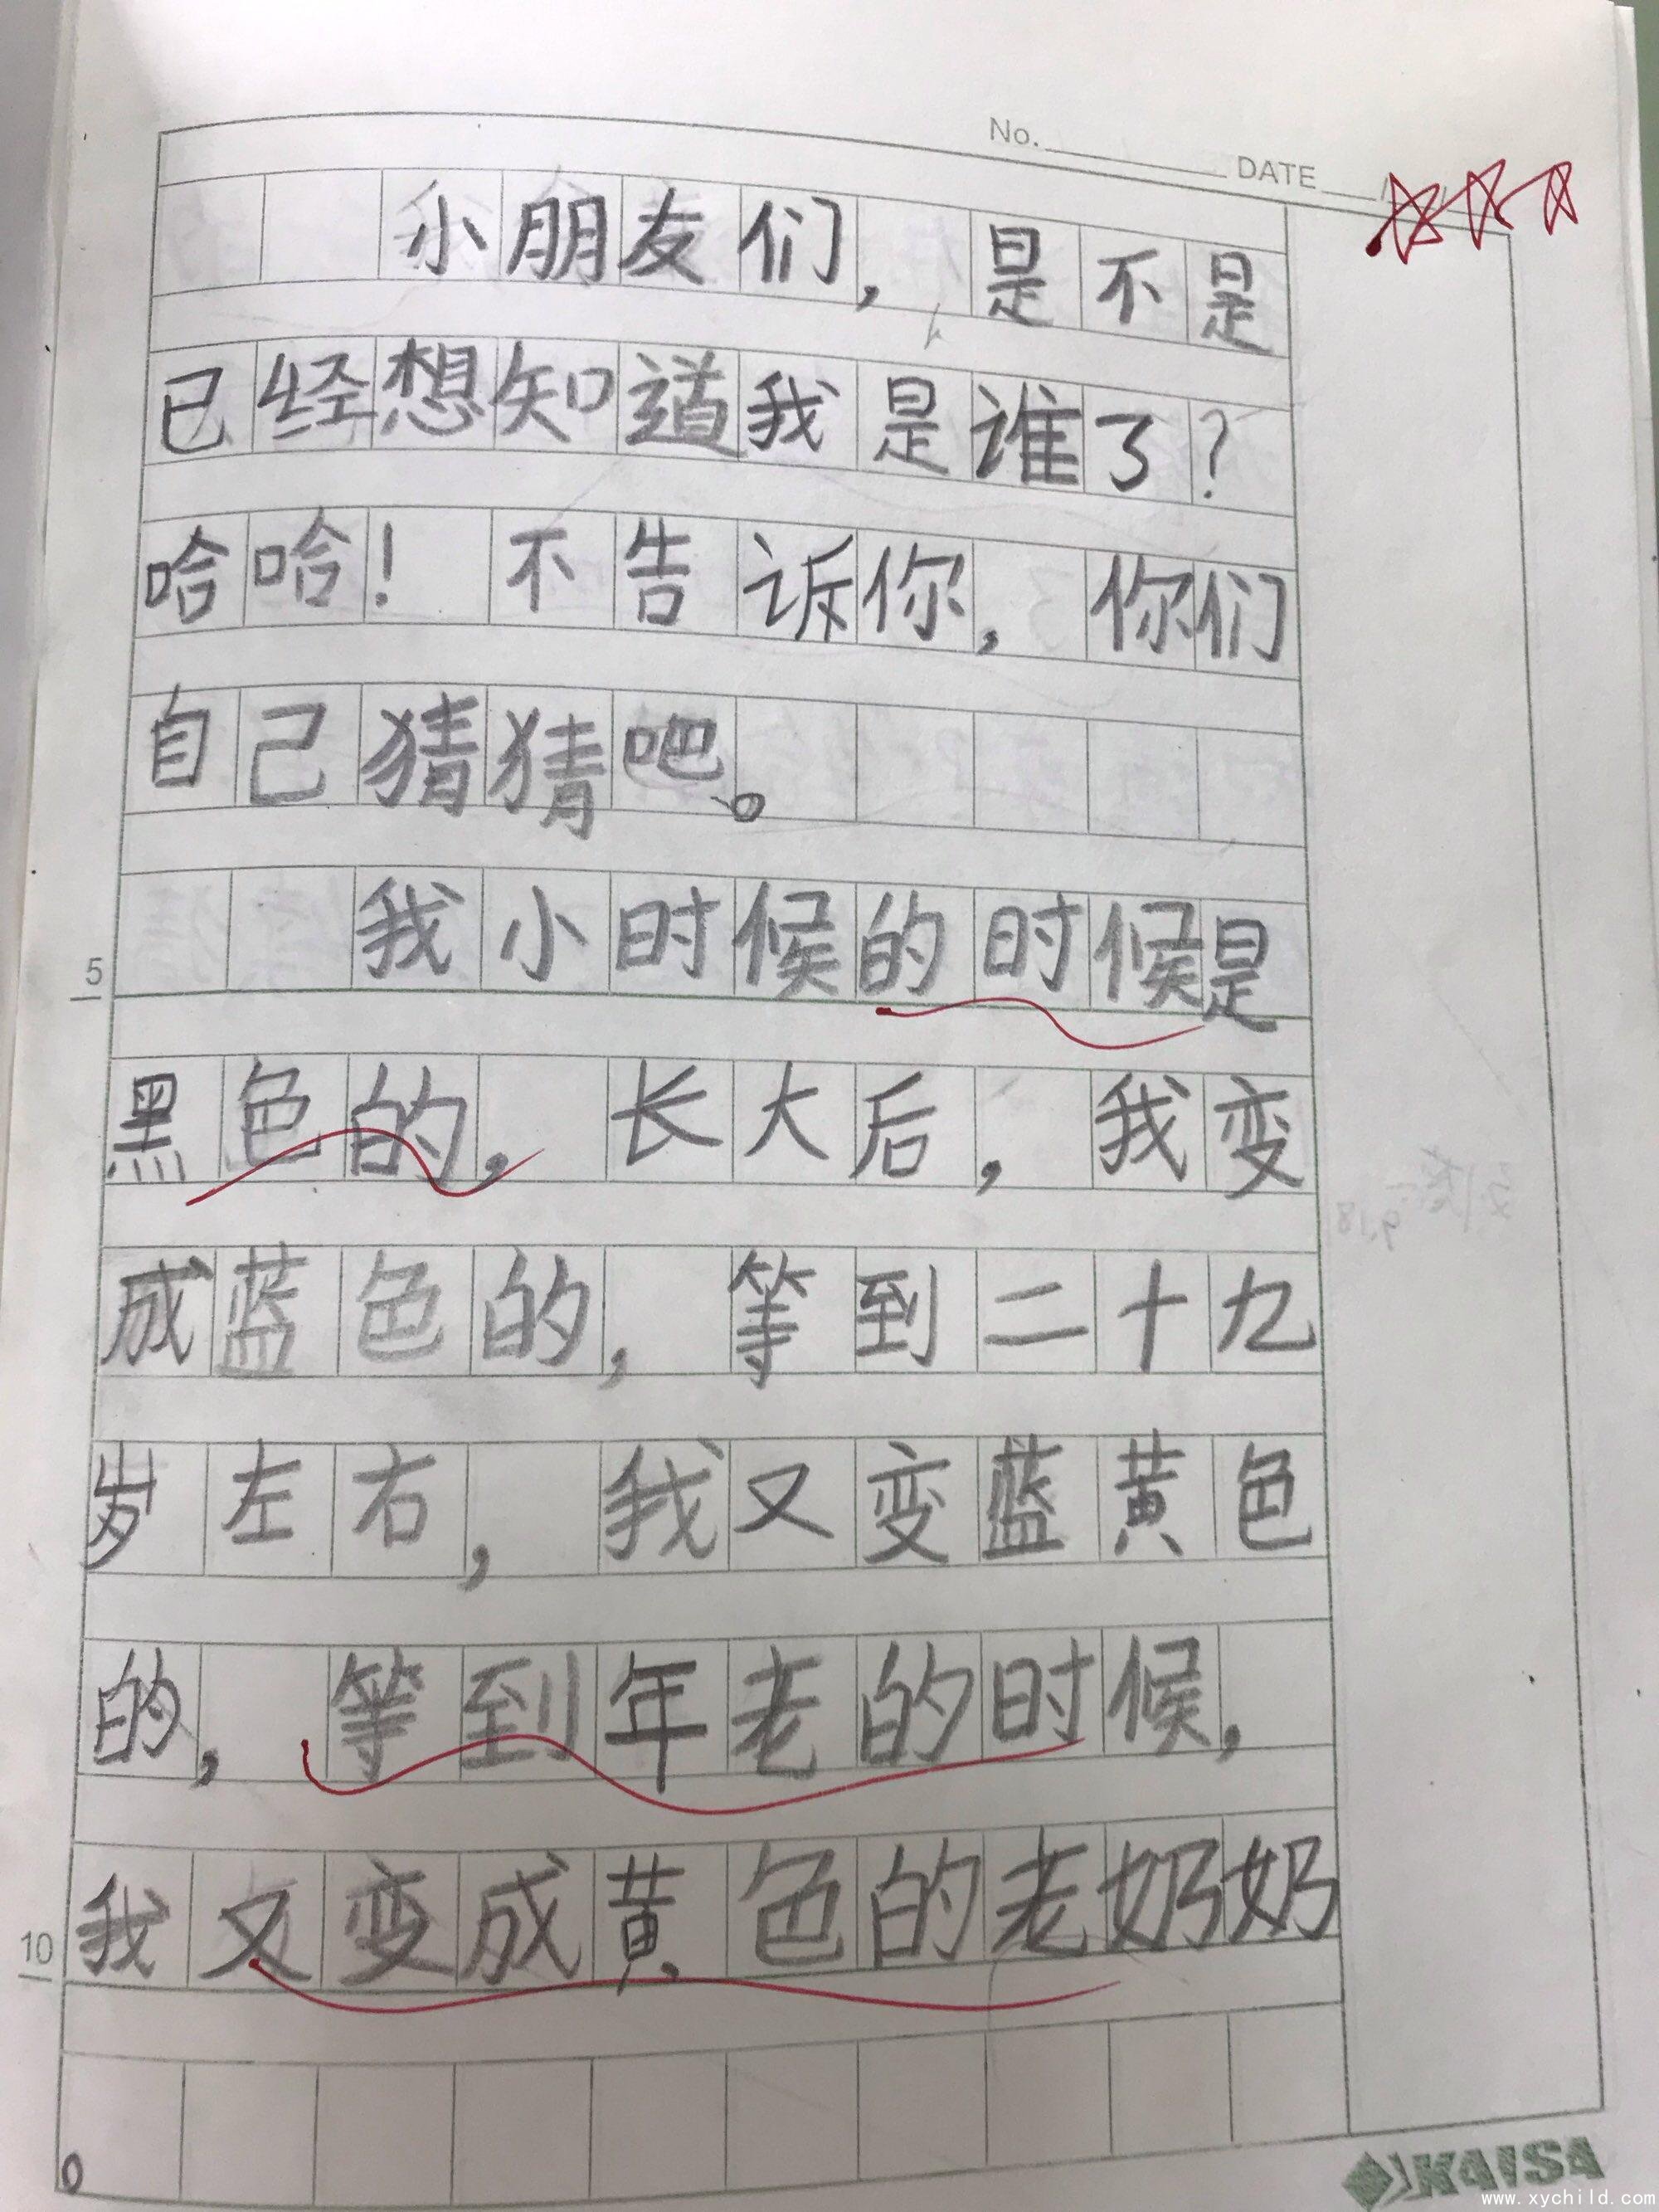 No. DATE
小朋友们，是不是
已经想知道我是谁了？
哈哈！不告诉你，你们
自己猜猜吧。
我小时候的时候是
5
黑色的，长大后，我变
成蓝色的，等到二十九
岁左右，我又变蓝黄色
的，等到年老的时候，
我又变成黄色的老奶奶
10
。
KAISA
www.xychild.com